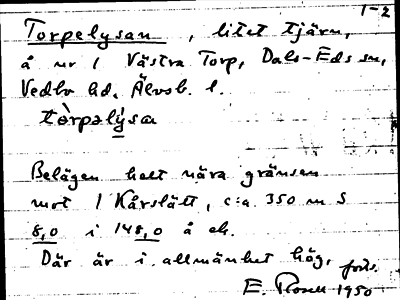 1-2
Torpelysan, litet tjärn,
å nr 1 Västra Torp, Dals-Eds sn,
Vedbo hd, Älvsb. l.
tòrpəlýsa
Belägen helt nära gränsen
mot 1 Kårslätt, c:a 350 m S
8,0 i 148,0 å ek.
Där är i allmänhet hög,
forts.
E. Rosell 1950